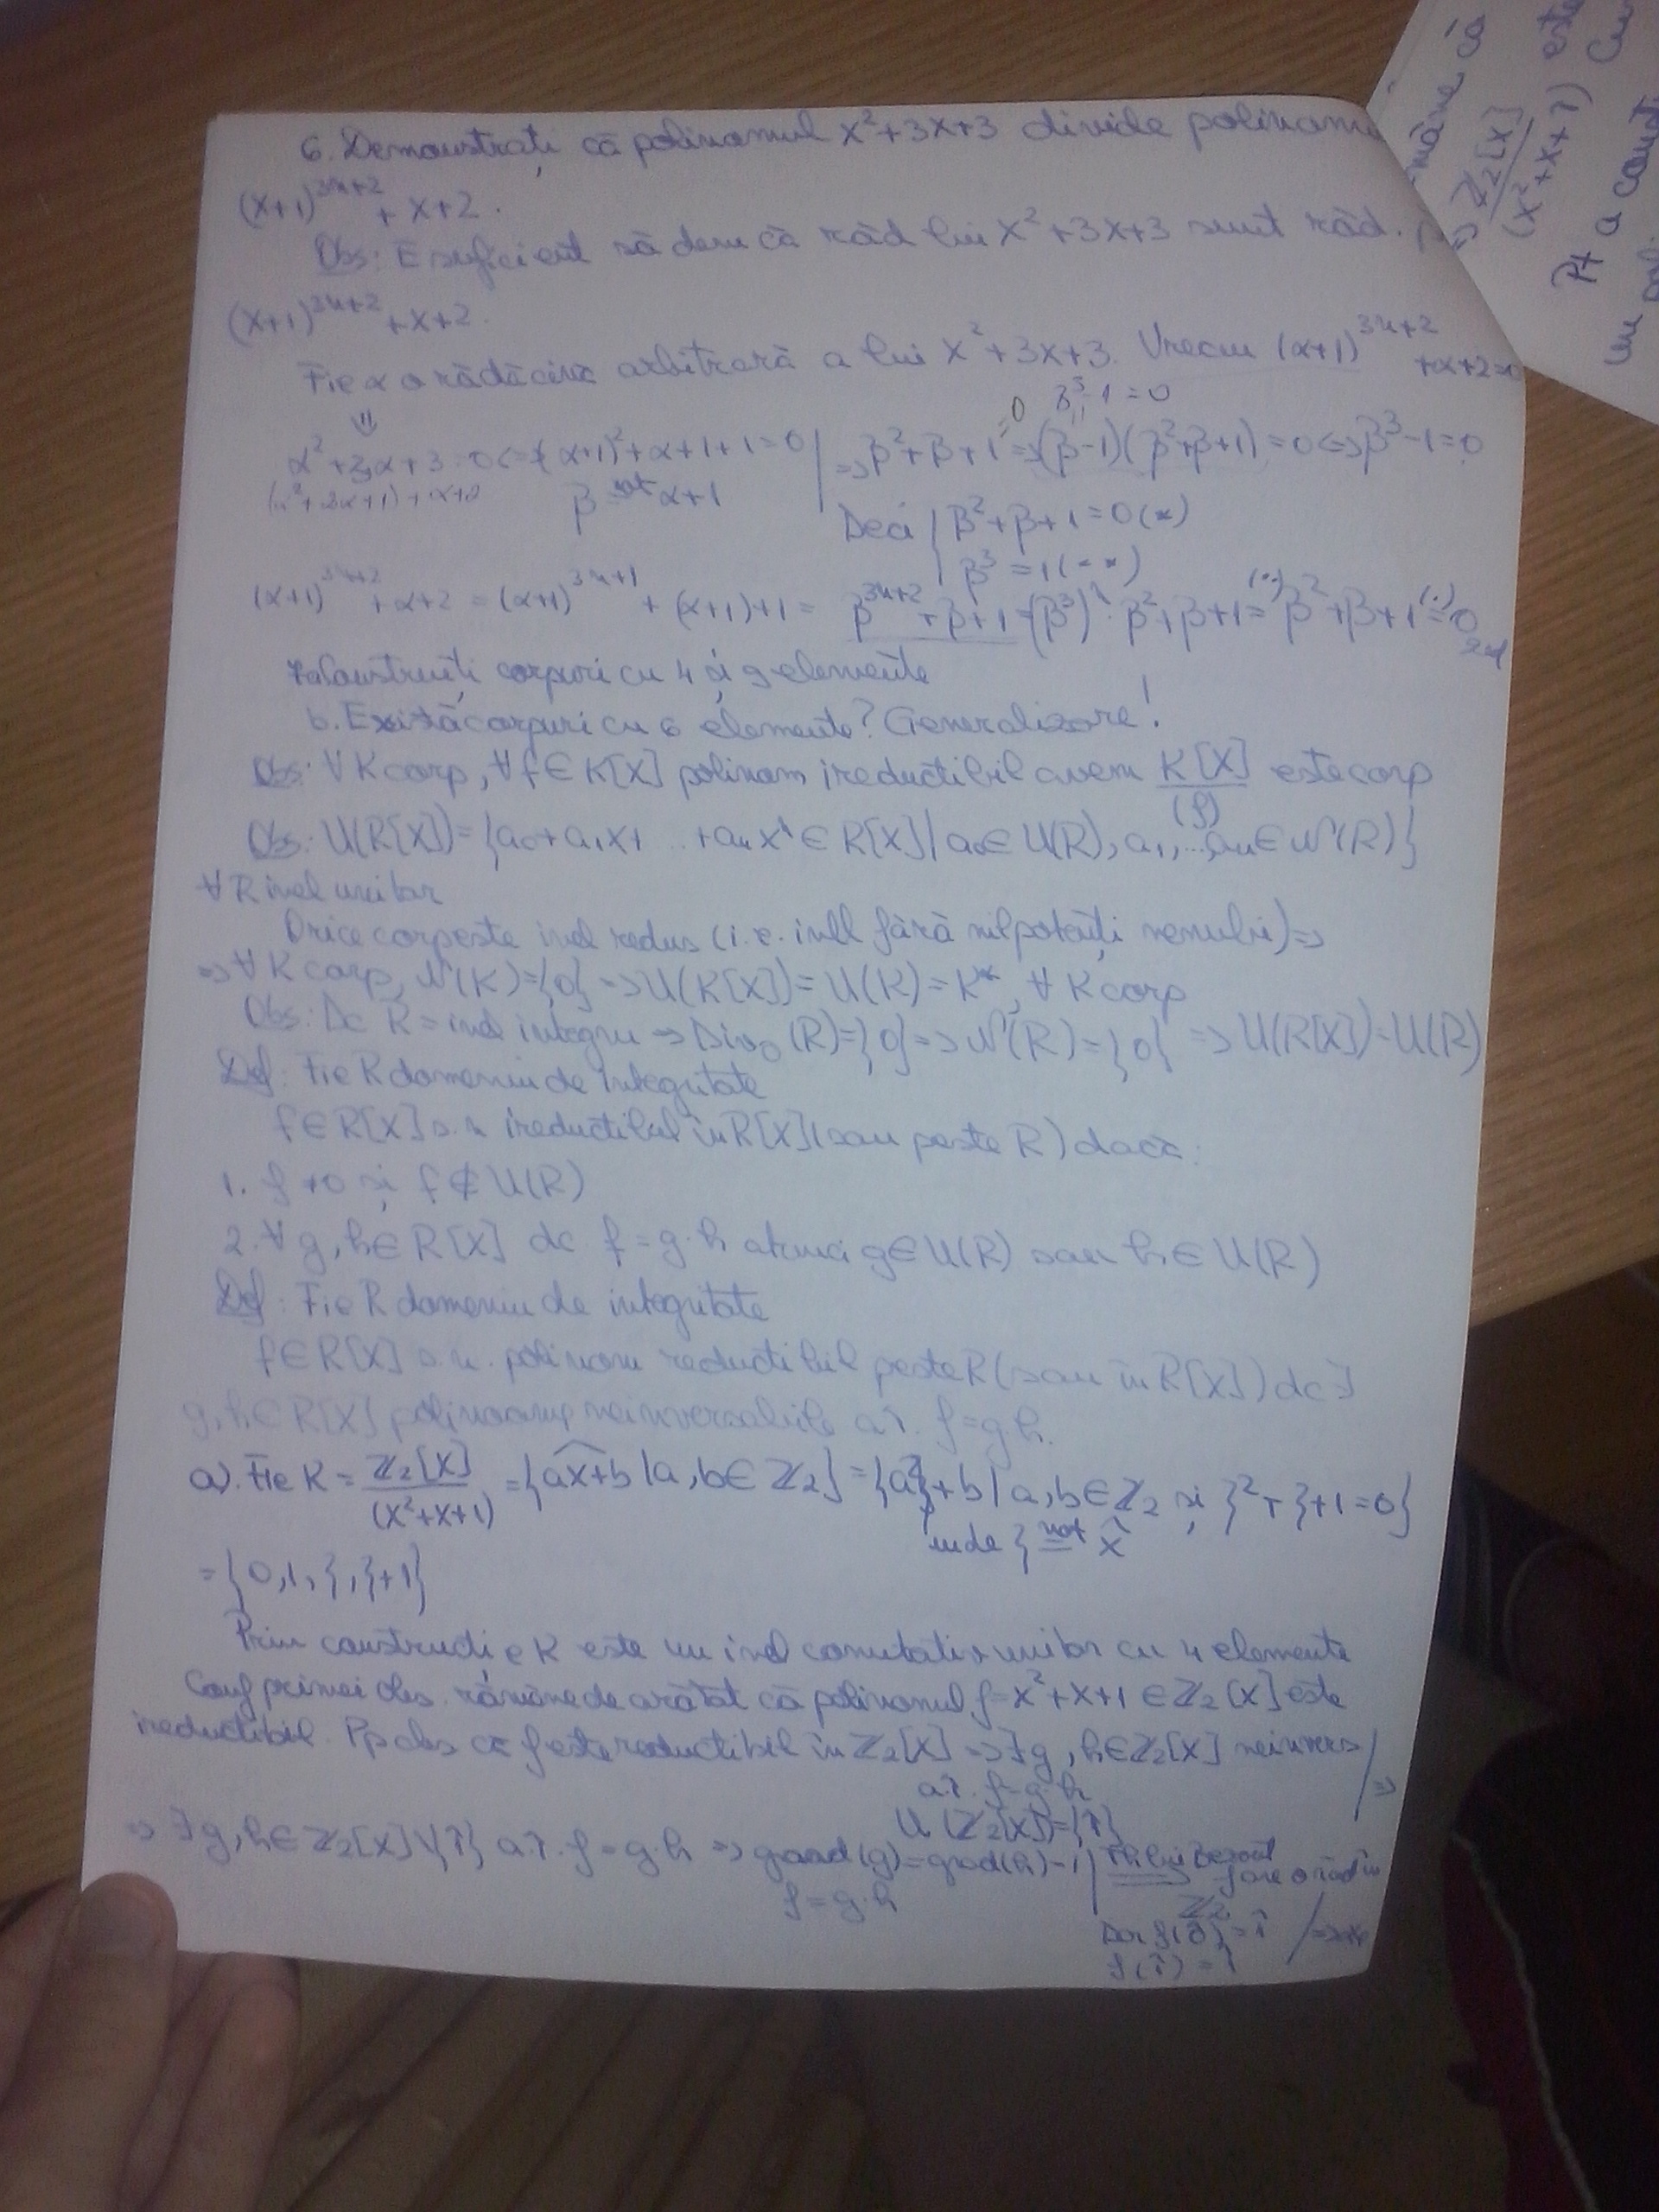 6. Demonstrați că polinomul X²+3X+3 divide polinomu
(X+1)^{3n+2} + X+2.
Obs: E suficient să dem că răd lui X²+3X+3 sunt răd.
(X+1)^{3n+2} + X+2.
Fie α o rădăcină arbitrară a lui X²+3X+3. Vrem (α+1)^{3n+2} + α+2=0
β³-1=0
α²+3α+3=0 <=> (α+1)²+α+1+1=0 | => β²+β+1=0 => (β-1)(β²+β+1)=0 <=> β³-1=0
(α²+2α+1)+α+2
β not= α+1
Deci { β²+β+1=0 (*)
β³=1 (**)
(α+1)^{3n+2}+α+2 = (α+1)^{3n+1} + (α+1)+1 = β^{3n+2}+β+1 = (β³)^n·β²+β+1 (**)= β²+β+1 (*)= 0
7.a Construiți corpuri cu 4 și 9 elemente
b. Există corpuri cu 6 elemente? Generalizare!
Obs: ∀ K corp, ∀ f∈K[X] polinom ireductibil avem K[X]/(f) este corp
Obs: U(R[X])={a₀+a₁X+ ... +aₙXⁿ∈R[X] | a₀∈U(R), a₁,...,aₙ∈N(R)}
∀ R inel unitar
Orice corp este inel redus (i.e. inel fără nilpotenți nenuli) =>
=> ∀ K corp, N(K)={0} => U(K[X])=U(K)=K*, ∀ K corp
Obs: Dc R = inel integru => Div₀(R)={0} => N(R)={0} => U(R[X])=U(R)
Def: Fie R domeniu de integritate
f∈R[X] s.n ireductibil în R[X] (sau peste R) dacă:
1. f≠0 și f∉U(R)
2. ∀ g,h∈R[X] dc f=g·h atunci g∈U(R) sau h∈U(R)
Def: Fie R domeniu de integritate
f∈R[X] s.n. polinom reductibil peste R (sau în R[X]) dc ∃
g,h∈R[X] polinoame neinversabile a.î. f=g·h.
a). Fie K = Z₂[X]/(X²+X+1) = {aX+b | a,b∈Z₂} = {aξ+b | a,b∈Z₂ și ξ²+ξ+1=0}
unde ξ not= X̂
= {0,1,ξ,ξ+1}
Prin construcție K este un inel comutativ unitar cu 4 elemente
Conf primei obs. rămâne de arătat că polinomul f=X²+X+1∈Z₂[X] este
ireductibil. Pp abs că f este reductibil în Z₂[X] => ∃ g,h∈Z₂[X] neinvers | =>
a.î. f=g·h
U(Z₂[X])={1̂}
=> ∃ g,h∈Z₂[X]\{1̂} a.î. f=g·h => grad(g)=grad(h)=1 | Th lui Bezout => f are o răd în
f=g·h
Z₂
Dar f(0̂)=1̂
f(1̂)=1̂
mâne că
=> Z₂[X]/(X²+X+1̂) este
Pt a const
un pol.